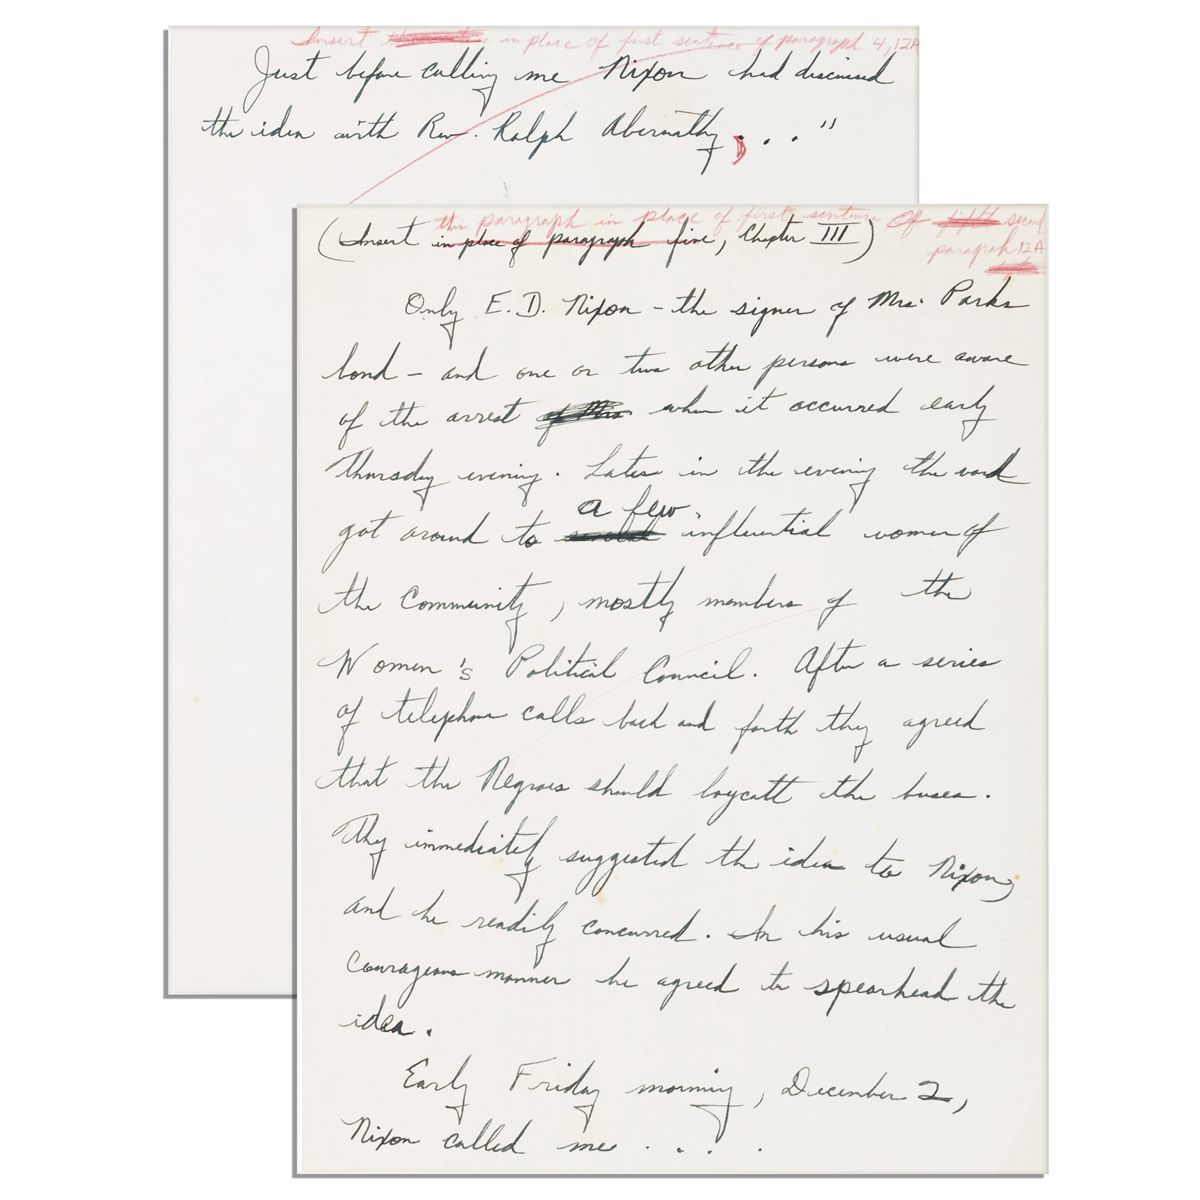 Insert in place of first sentence of paragraph 4, 12A
Just before calling me Nixon had discussed
the idea with Rev. Ralph Abernathy. . . "
this paragraph in place of first sentence of fifth second
(Insert in place of paragraph five, Chapter III)
paragraph 12A
Only E. D. Nixon – the signer of Mrs. Parks
bond – and one or two other persons were aware
of the arrest of Mrs when it occurred early
Thursday evening. Later in the evening the word
a few
got around to several influential women of
the Community, mostly members of the
Women's Political Council. After a series
of telephone calls back and forth they agreed
that the Negroes should boycott the buses.
They immediately suggested the idea to Nixon,
and he readily concurred. In his usual
courageous manner he agreed to spearhead the
idea.
Early Friday morning, December 2,
Nixon called me . . . .